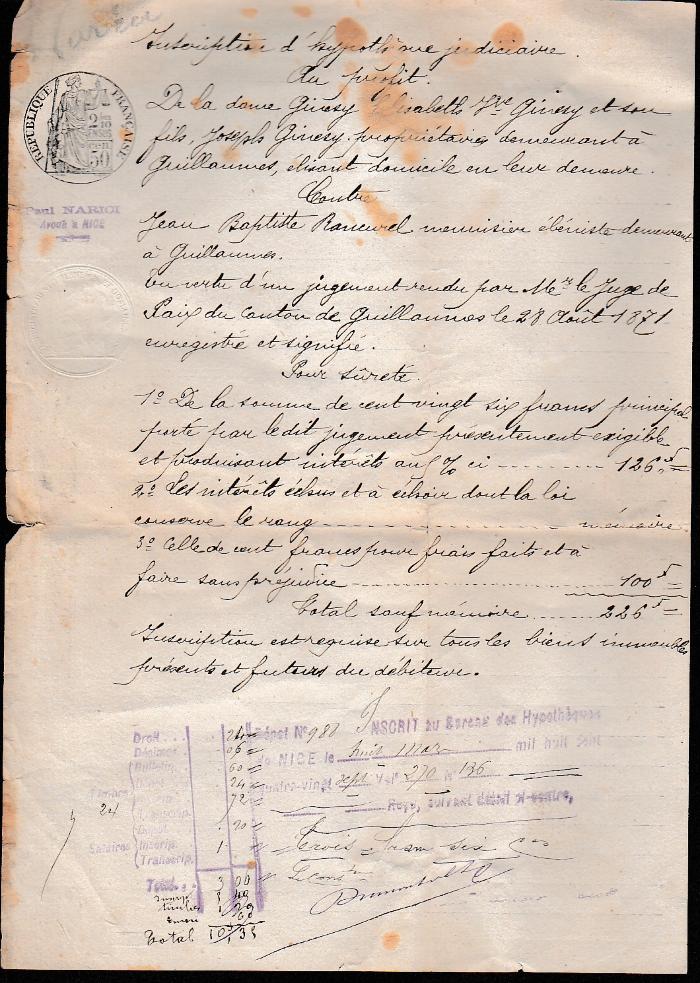 Inscription d'hypothèque judiciaire.
Au profit.
De la dame Ginesy Elisabeth Vve Ginesy et son
fils, Joseph Ginesy propriétaires demeurant à
Guillaumes, élisant domicile en leur demeure.
Contre
Jean Baptiste Rancurel menuisier ébéniste demeurant
à Guillaumes.
En vertu d'un jugement rendu par Mr le Juge de
Paix du canton de Guillaumes le 28 Août 1871
enregistré et signifié.
Pour sûreté.
1º De la somme de cent vingt six francs principal
porté par le dit jugement présentement exigible
et produisant intérêts au 5% ci 126.f
2º Les intérêts échus et à échoir dont la loi
conserve le rang mémoire
3º Celle de cent francs pour frais faits et à
faire sans préjudice 100f=
Total sauf mémoire 226f=
Inscription est requise sur tous les biens immeubles
présents et futurs du débiteur.
REPUBLIQUE FRANÇAISE
2 10
50
Paul NARICI
Avoué à NICE
Dépot Nº 988 INSCRIT au Bureau des Hypothèques
de NICE le huit mar mil huit cent
quatre-vingt sept Vol 270 Nº 136
Reçu, suivant détail ci-contre,
Trois fran six
Droit
Décimes 06
Bulletin 60
Timbre
24
72
Transcrip.
Dépot 20
Salaires Inscrip. 1
Transcrip.
Total 3 00
Total 10,35